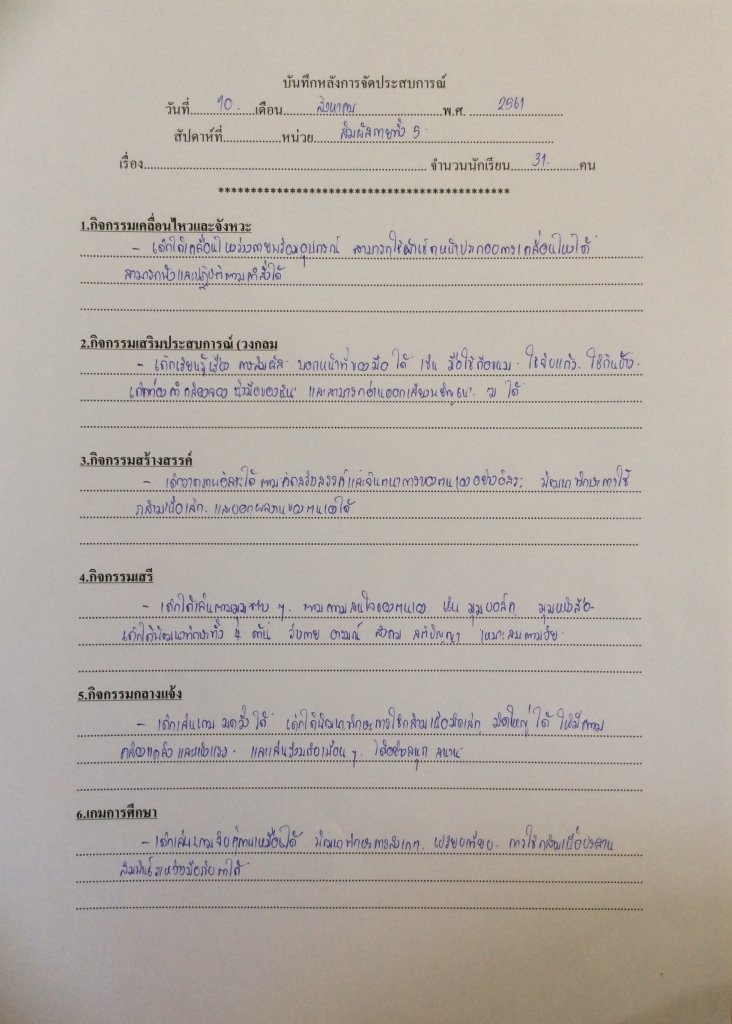 บันทึกหลังการจัดประสบการณ์
วันที่ 10. เดือน สิงหาคม พ.ศ. 2561
สัปดาห์ที่ หน่วย สัมผัสกายทั้ง 5
เรื่อง จำนวนนักเรียน 31. คน
**********************************************
1.กิจกรรมเคลื่อนไหวและจังหวะ
- เด็กได้เคลื่อนไหวร่างกายพร้อมอุปกรณ์ สามารถใช้ผ้าเช็ดหน้าประกอบการเคลื่อนไหวได้
สามารถฟังและปฏิบัติตามคำสั่งได้
2.กิจกรรมเสริมประสบการณ์ (วงกลม
- เด็กเรียนรู้เรื่อง การสัมผัส บอกหน้าที่ของมือ ได้ เช่น มือใช้ถือขนม. ใช้จับแก้ว.
เด็กท่องคำคล้องจอง นิ้วมือของฉัน และสามารถอ่านออกเสียงพยัญชนะ ได้
3.กิจกรรมสร้างสรรค์
- เด็กวาดภาพอิสระได้ ตามคิดสร้างสรรค์และจินตนาการของตนเองอย่างอิสระ พัฒนาทักษะการใช้
กล้ามเนื้อเล็ก. และบอกผลงานของตนเองได้
4.กิจกรรมเสรี
- เด็กได้เล่นตามมุมต่าง ๆ. ตามความสนใจของตนเอง เช่น มุมบล็อก มุมหนังสือ.
เด็กได้พัฒนาทักษะทั้ง 4 ด้าน ร่างกาย อารมณ์ สังคม สติปัญญา เหมาะสมตามวัย.
5.กิจกรรมกลางแจ้ง
- เด็กเล่นเกม ได้ เด็กได้พัฒนาทักษะการใช้กล้ามเนื้อมัดเล็ก มัดใหญ่ ได้ ให้มีความ
คล่องแคล่วและแข็งแรง. และเล่นร่วมกับเพื่อน ๆ. ได้อย่างสนุก สนาน
6.เกมการศึกษา
- เด็กเล่นเกมจับคู่ภาพเหมือนได้ พัฒนาทักษะการสังเกต. เปรียบเทียบ. การใช้กล้ามเนื้อประสาน
สัมพันธ์ระหว่างมือกับตาได้